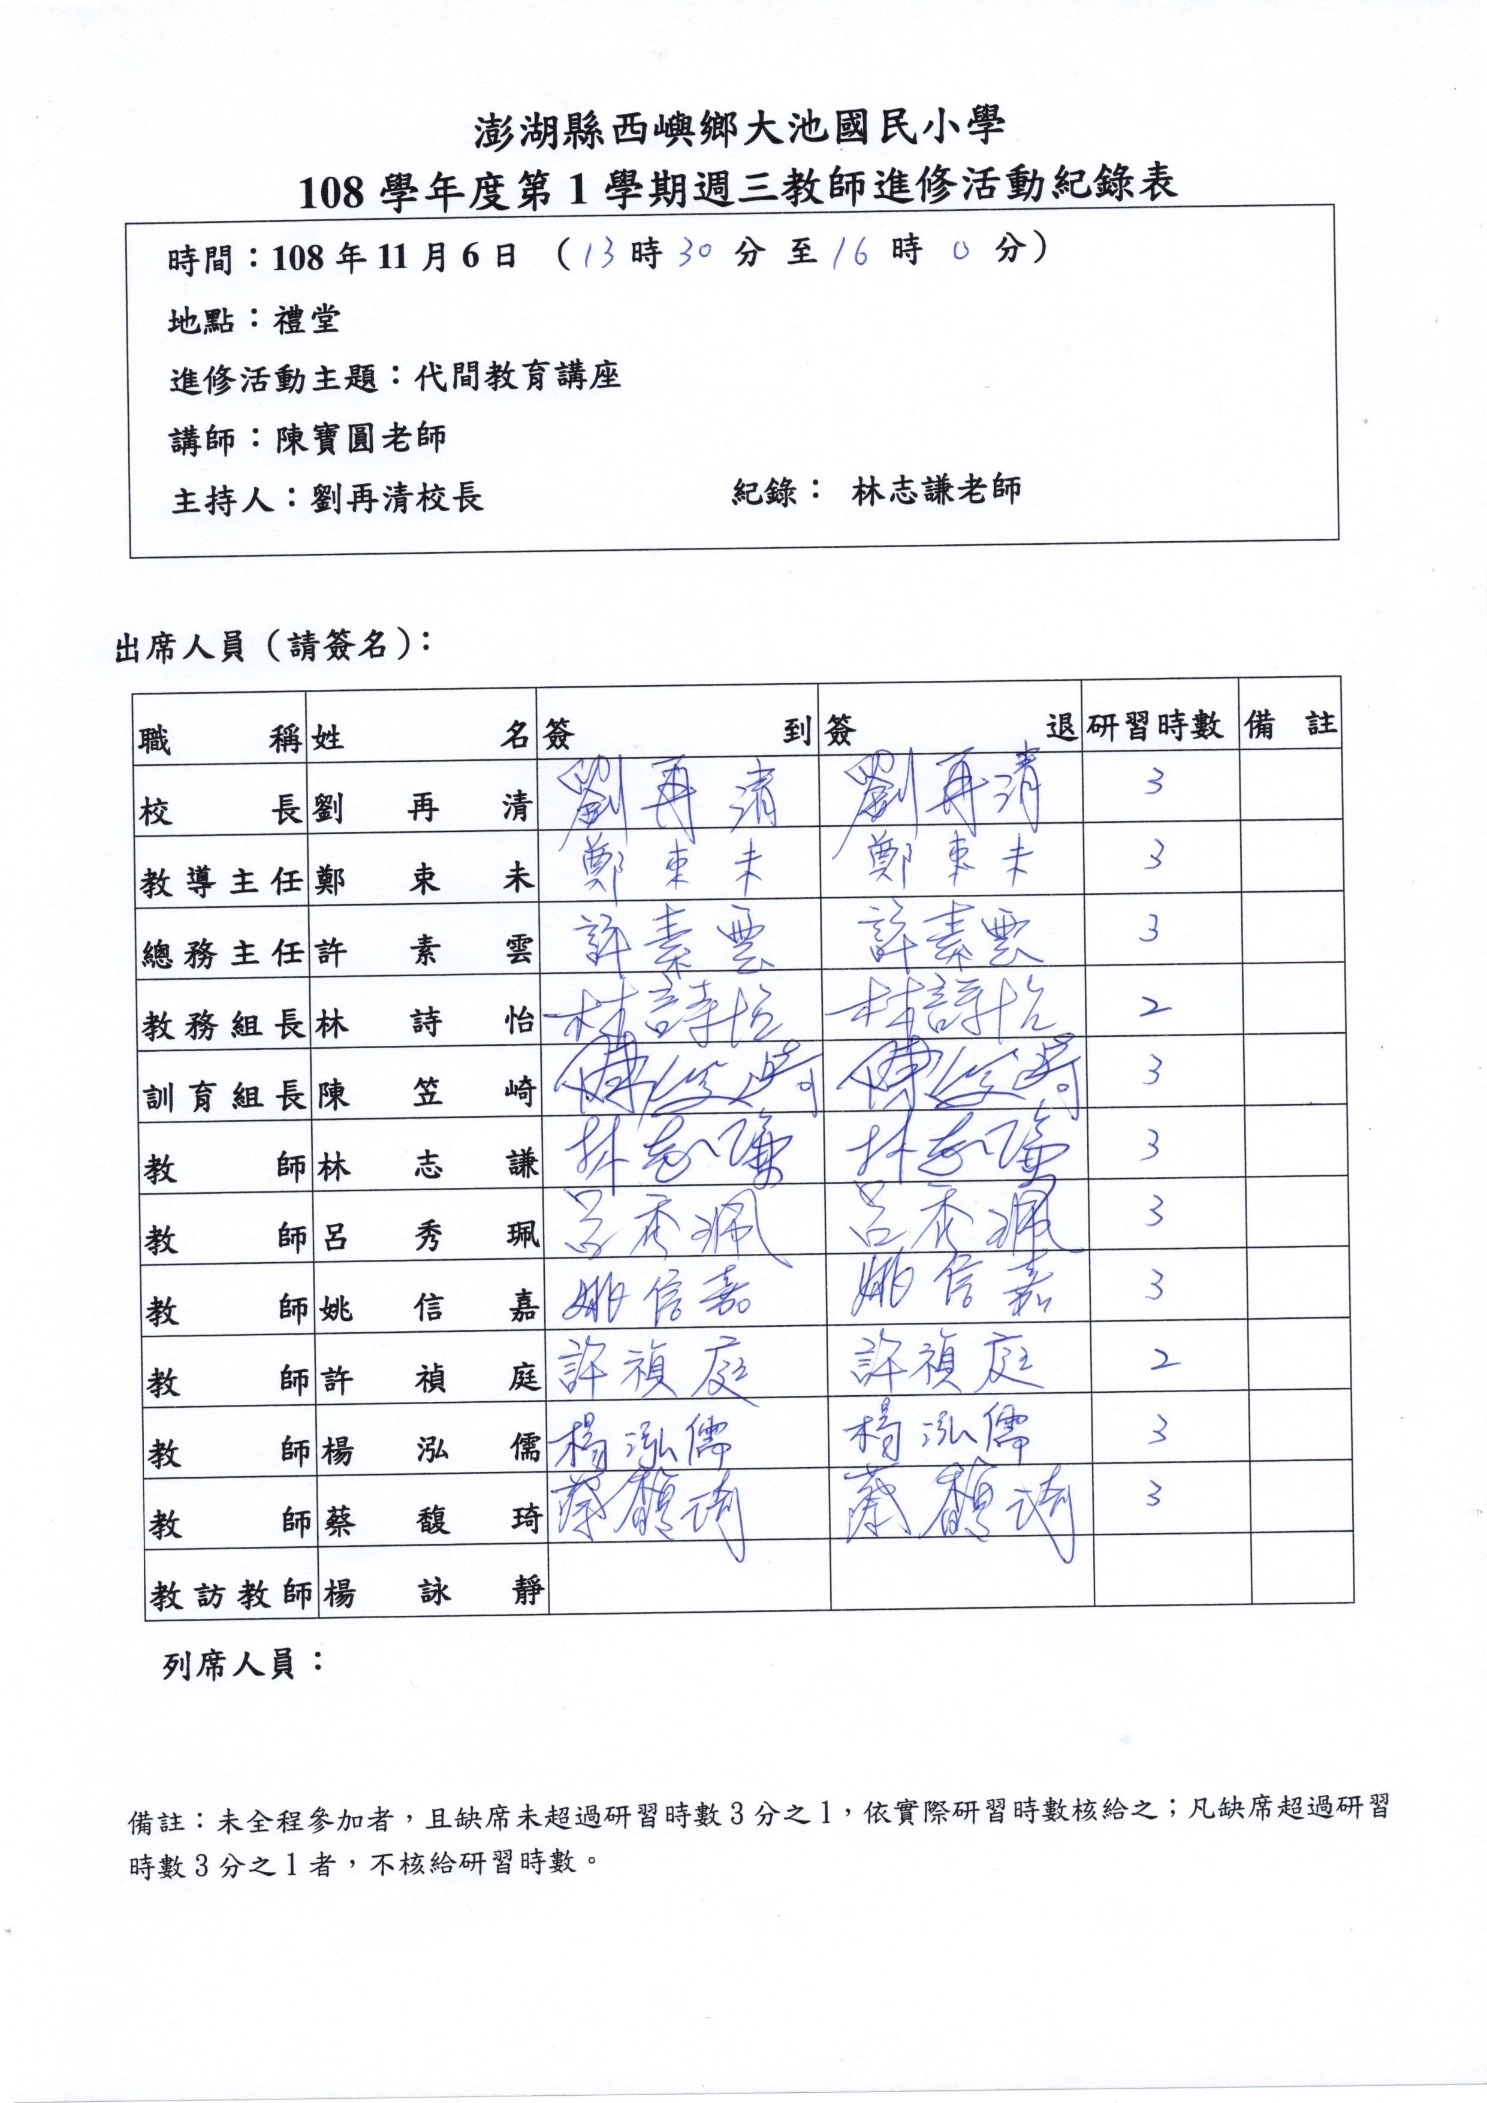 澎湖縣西嶼鄉大池國民小學
108 學年度第 1 學期週三教師進修活動紀錄表
時間：108 年 11 月 6 日 （13 時 30 分 至 16 時 0 分）
地點：禮堂
進修活動主題：代間教育講座
講師：陳寶圓老師
主持人：劉再清校長 紀錄： 林志謙老師
出席人員（請簽名）：
職稱 姓名 簽到 簽退 研習時數 備註
校長 劉再清 劉再清 劉再清 3
教導主任 鄭束未 鄭束未 鄭束未 3
總務主任 許素雲 許素雲 許素雲 3
教務組長 林詩怡 林詩怡 林詩怡 2
訓育組長 陳笠崎 陳笠崎 陳笠崎 3
教師 林志謙 林志謙 林志謙 3
教師 呂秀珮 呂秀珮 呂秀珮 3
教師 姚信嘉 姚信嘉 姚信嘉 3
教師 許禎庭 許禎庭 許禎庭 2
教師 楊泓儒 楊泓儒 楊泓儒 3
教師 蔡馥琦 蔡馥琦 蔡馥琦 3
教訪教師 楊詠靜
列席人員：
備註：未全程參加者，且缺席未超過研習時數 3 分之 1，依實際研習時數核給之；凡缺席超過研習
時數 3 分之 1 者，不核給研習時數。